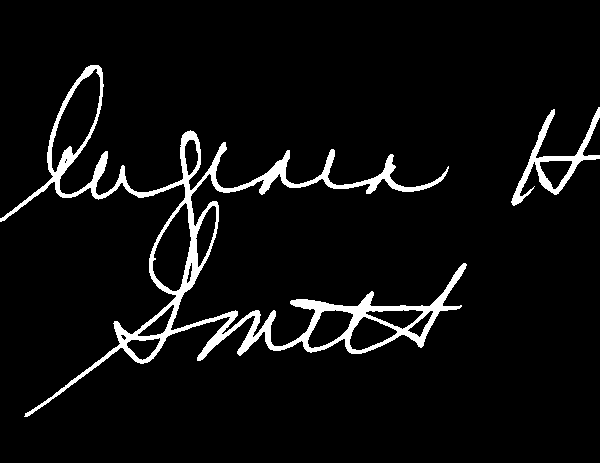 Eugenia H
Smith